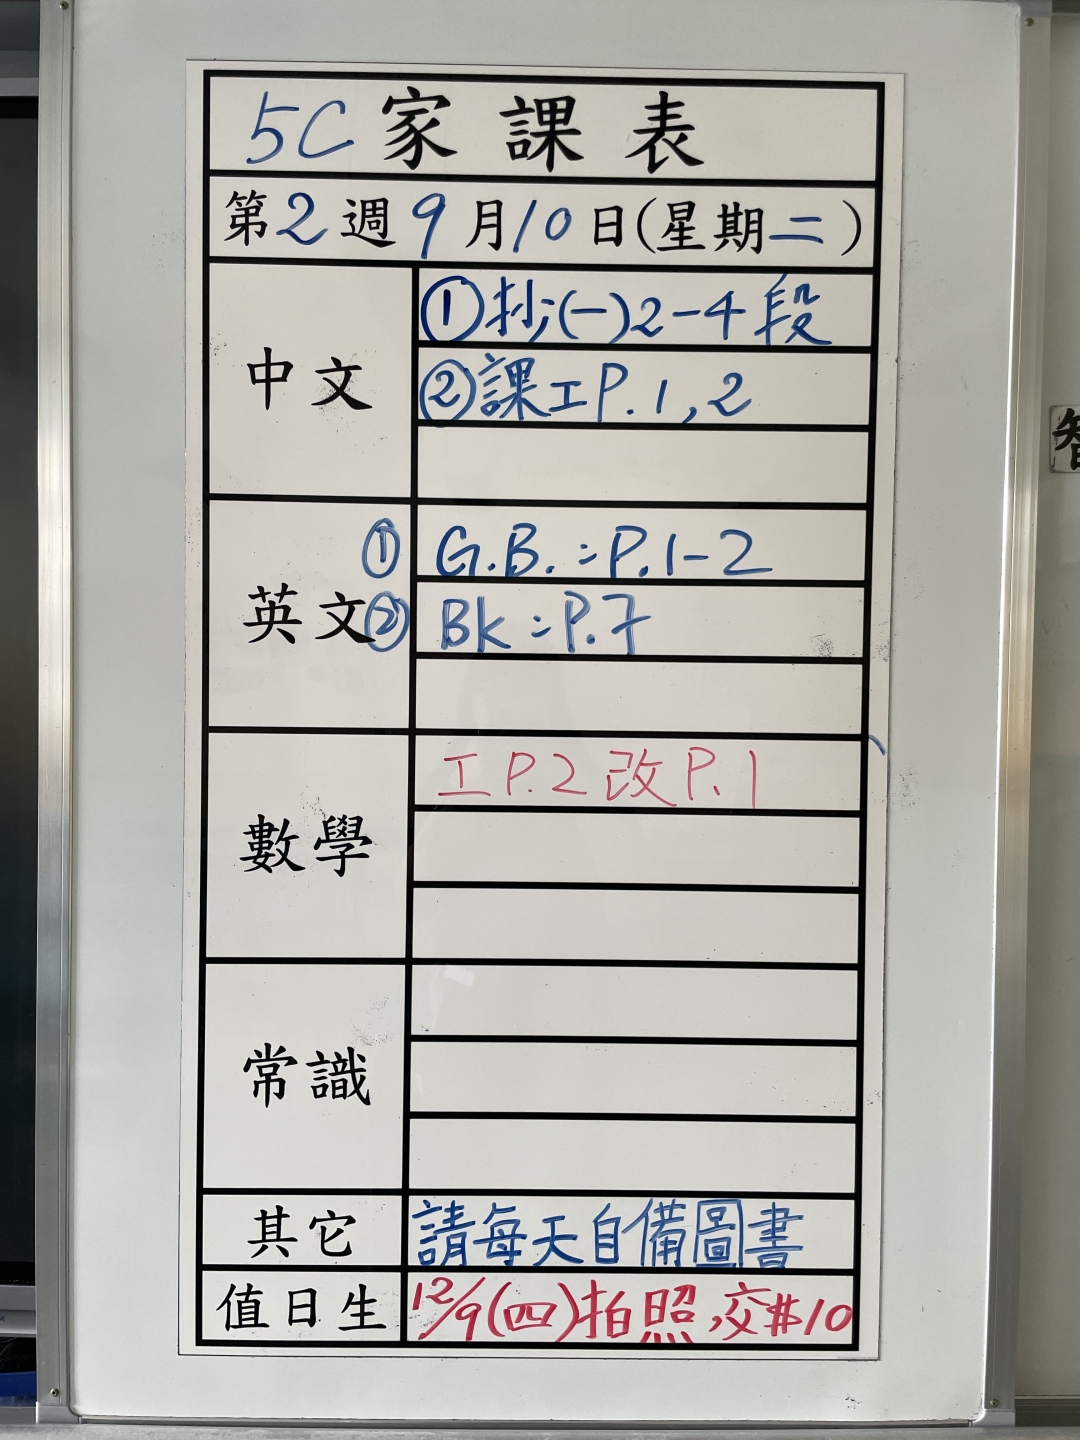 5C家課表
第2週9月10日(星期二)
中文
①抄(一)2-4段
②課工P.1,2
英文
① G.B.:P.1-2
② Bk:P.7
數學
工P.2改P.1
常識
其它
請每天自備圖書
值日生
12/9(四)拍照,交#10
智